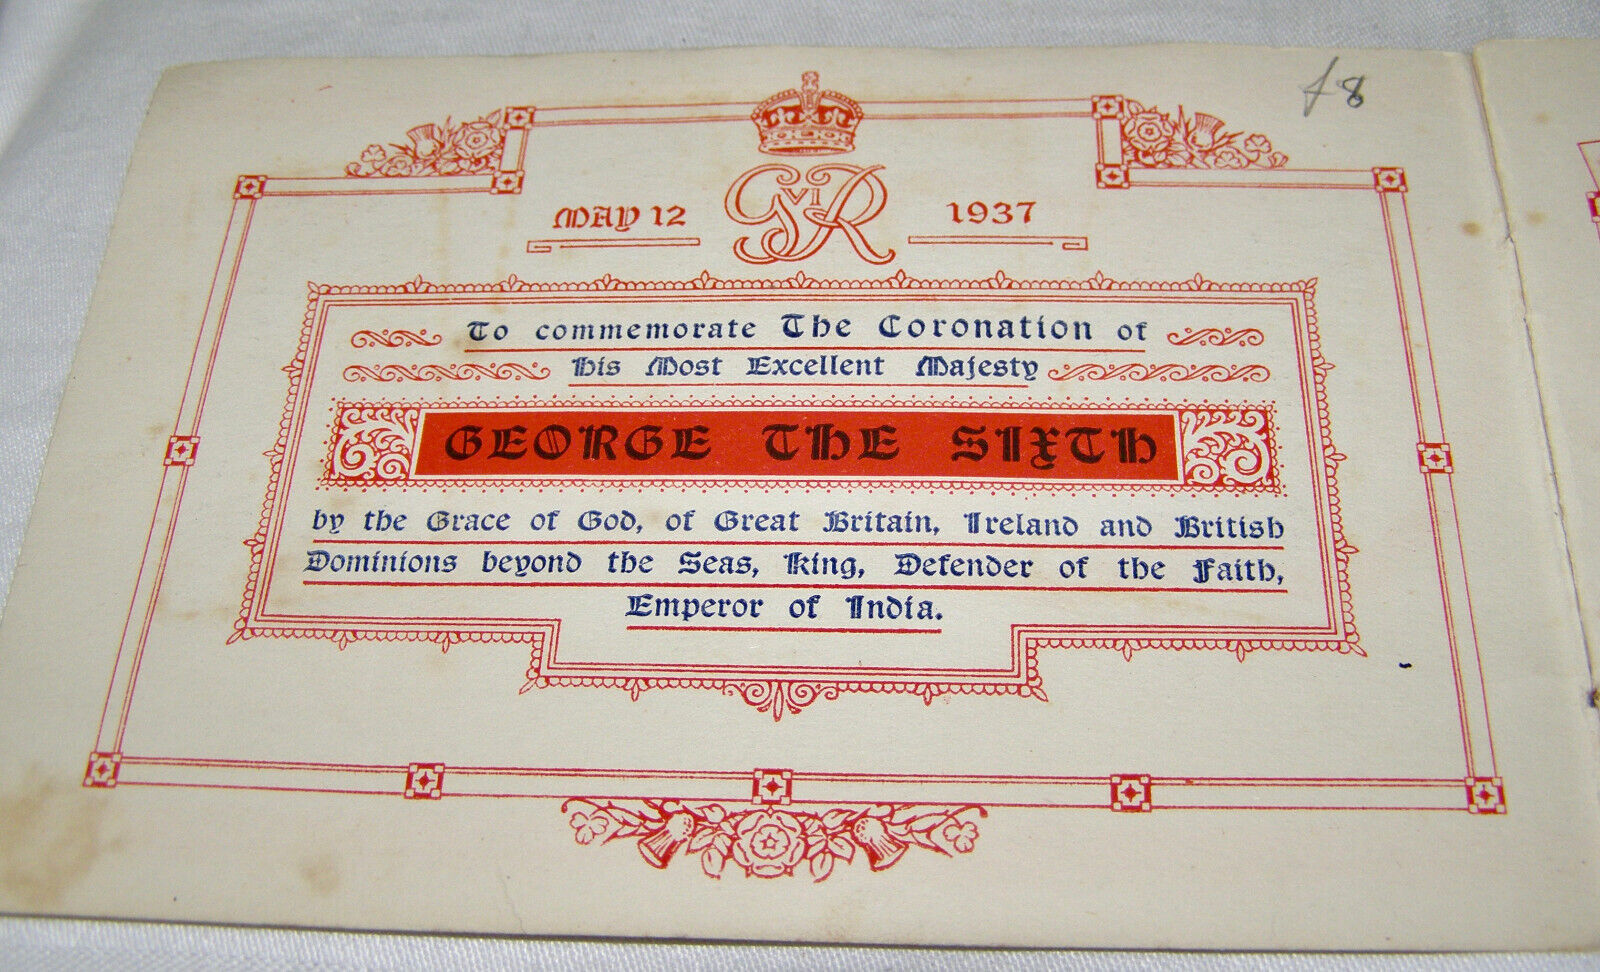 £8
MAY 12 GVIR 1937
To commemorate The Coronation of
His Most Excellent Majesty
GEORGE THE SIXTH
by the Grace of God, of Great Britain, Ireland and British
Dominions beyond the Seas, King, Defender of the Faith,
Emperor of India.